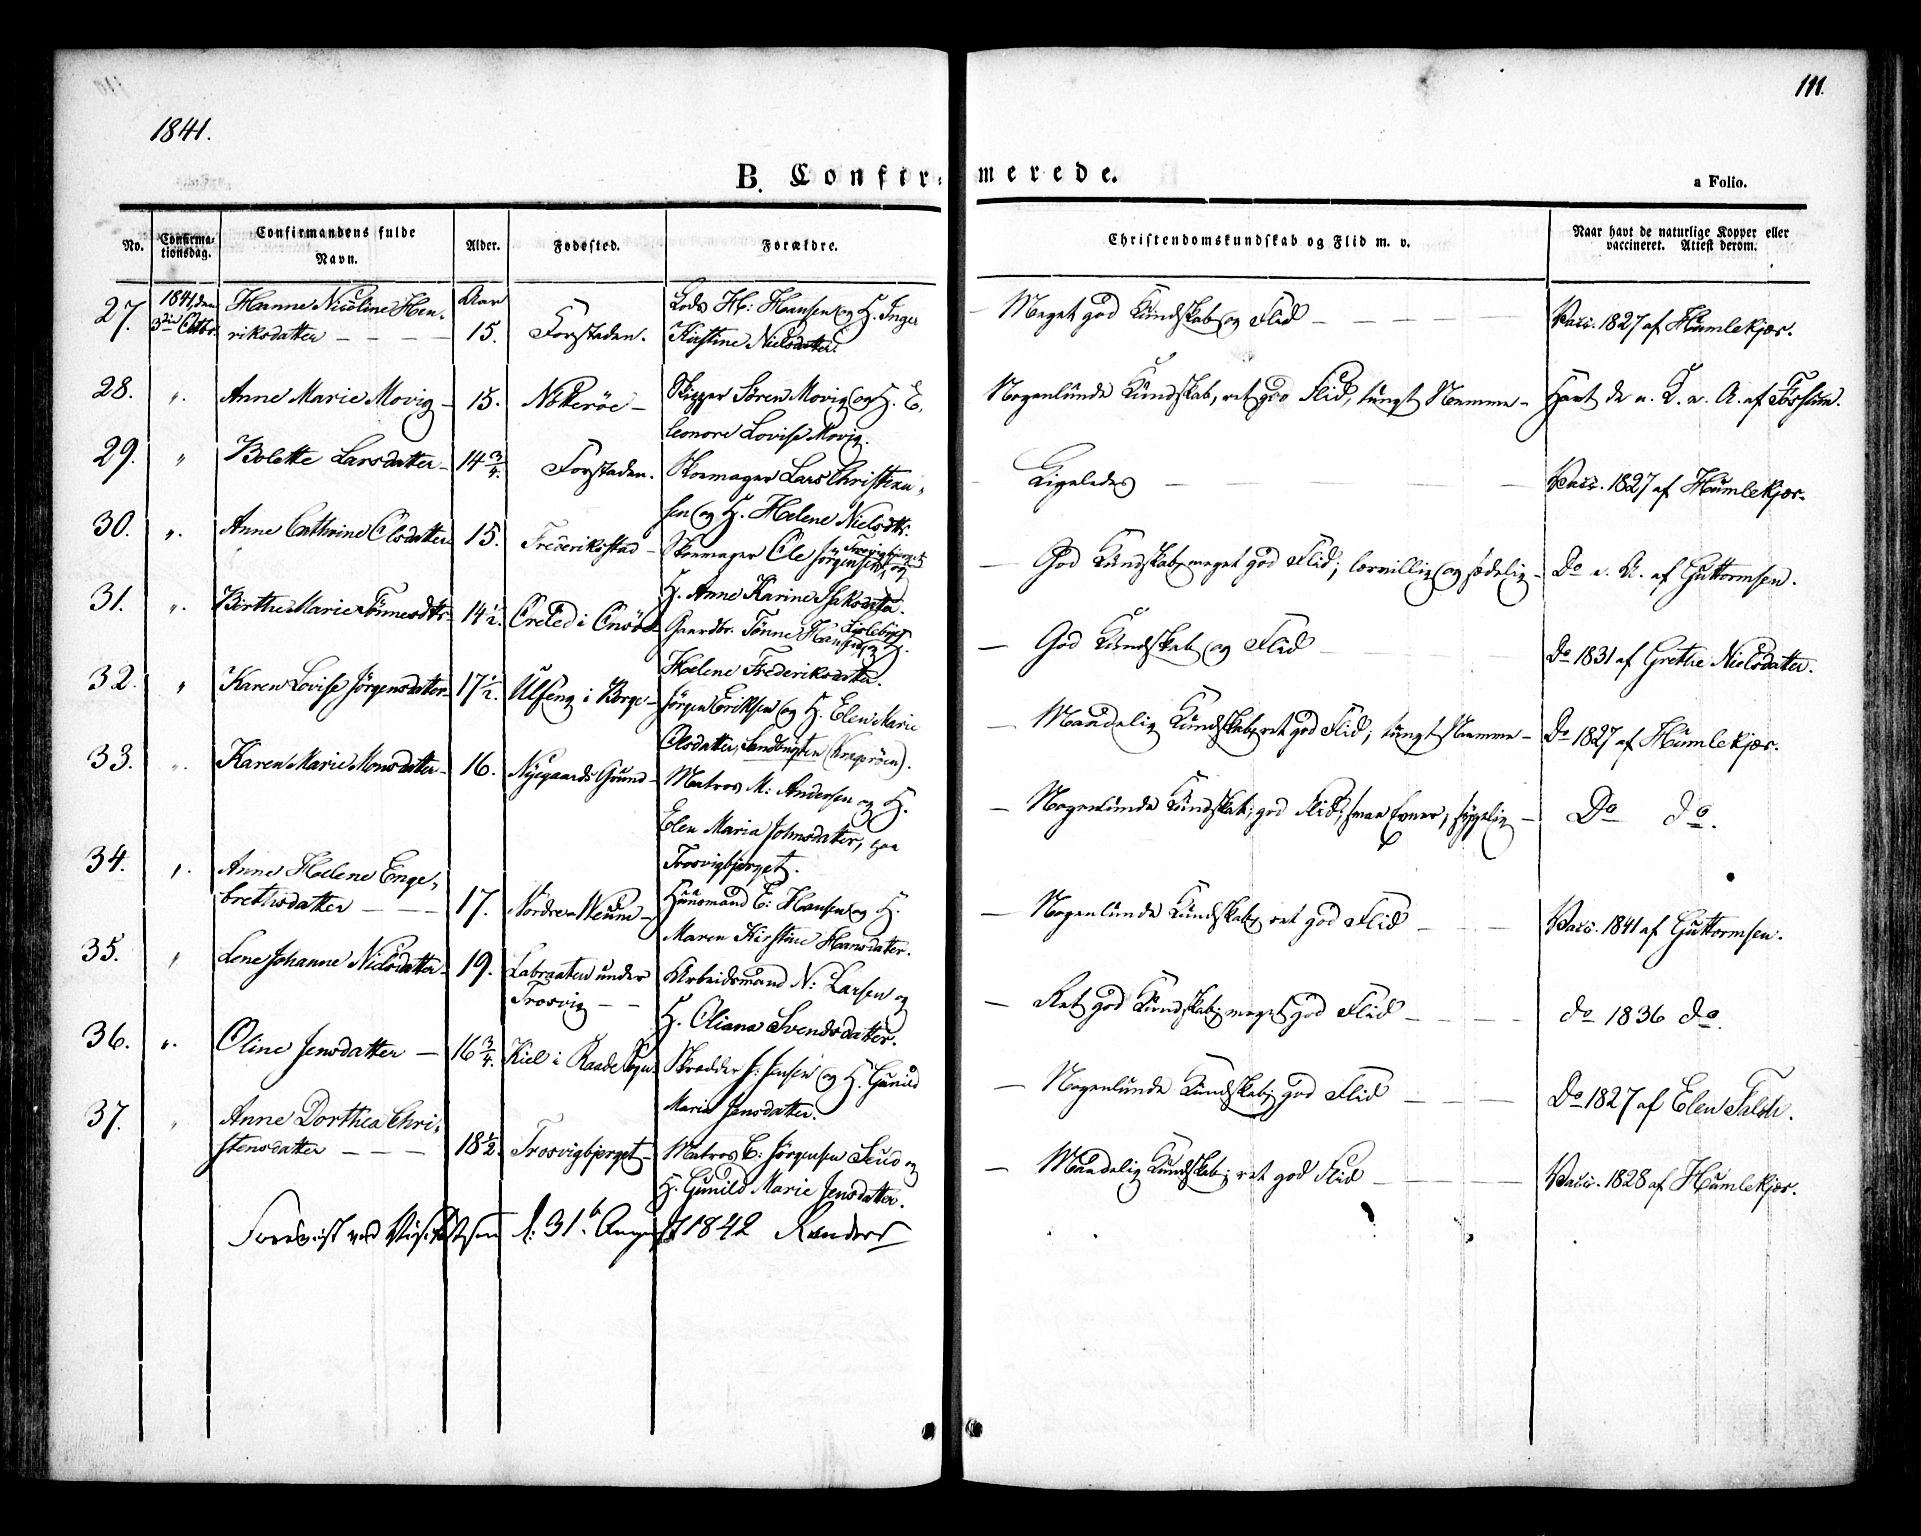 111.
1841.
B. Confirmerede.
a Folio.
No.
Confirmationsdag.
Confirmandens fulde Navn.
Alder.
Fødested.
Forældre.
Christendomskundskab og Flid m. v.
Naar havt de naturlige Kopper eller vaccineret. Attest derom.
27. 1841, den 3die Octbr. Hanne Nicoline Hen- Aar Lods H: Hansen og H. Inger
riksdatter 15. Forstaden. Kirstine Nielsdatter. Meget god Kundskab og Flid Vacc. 1827 af Humlekjær.
28. ". Anne Marie Movig 15. Nøkerøe Skipper Søren Movig og H. E-
leonore Lovise Movig. Nogenlunde Kundskab, ret god Flid, tungt Nemme Havt de n. K. e. A. af Fossum.
29. " Bolette Larsdatter 14 3/4. Forstaden. Skomager Lars Christian-
sen og H. Helene Nielsdtr. Ligeledes Vacc. 1827 af Humlekjær.
30. ". Anne Cathrine Olsdatter 15. Frederikstad Skomager Ole Jörgensen, Trosvigbjerget og
H. Anne Karine Isaksdatter. God Kundskab, meget god Flid; lærvillig og sædelig Do e. A. af Guttormsen.
31. ". Birthe Marie Tönnesdtr 14 1/2. Oreled i Onsöe Gaardbr. Tönne Hansen og H.
Helene Frederiksdatter. God Kundskab og Flid Do 1831 af Grethe Nielsdatter.
32. " Karen Lovise Jörgensdatter 17 1/2. Ulfeng i Borge Jörgen Eriksen og H. Elen Marie
Olsdatter, Sandbugten (Kragröen). Maadelig Kundskab, ret god Flid; tungt Nemme Do 1827 af Humlekjær.
33. ". Karen Marie Monsdatter 16. Nyegaards Grund Matros M: Andersen og H.
Elen Maria Johnsdatter, paa
Trosvigbjerget. Nogenlunde Kundskab; god Flid; smaa Evner, sygelig Do do.
34. ". Anne Helene Enge-
brethsdatter 17. Nordre Weum Huusmand E: Hansen og H.
Maren Kirstine Hansdatter. Nogenlunde Kundskab, ret god Flid Vacc. 1841 af Guttormsen.
35. " Lene Johanne Nielsdatter 19. Labraaten under
Trosvig Arbeidsmand N: Larsen og
H. Oliana Svendsdatter. Ret god Kundskab; meget god Flid do 1836 do.
36. ". Oline Jensdatter 16 3/4. Kiel i Raade Sogn Skrædder J: Jensen og H. Gunild
Maria Jensdatter. Nogenlunde Kundskab; god Flid Do 1827 af Elen Falch.
37. " Anne Dorthea Chri-
stensdatter 18 1/2. Trosvigbjerget Matros C: Jörgensen og
H. Gunild Marie Jensdatter. Maadelig Kundskab; ret god Flid Vacc. 1828 af Humlekjær.
Foreviist ved Visitatsen d: 31te August 1842